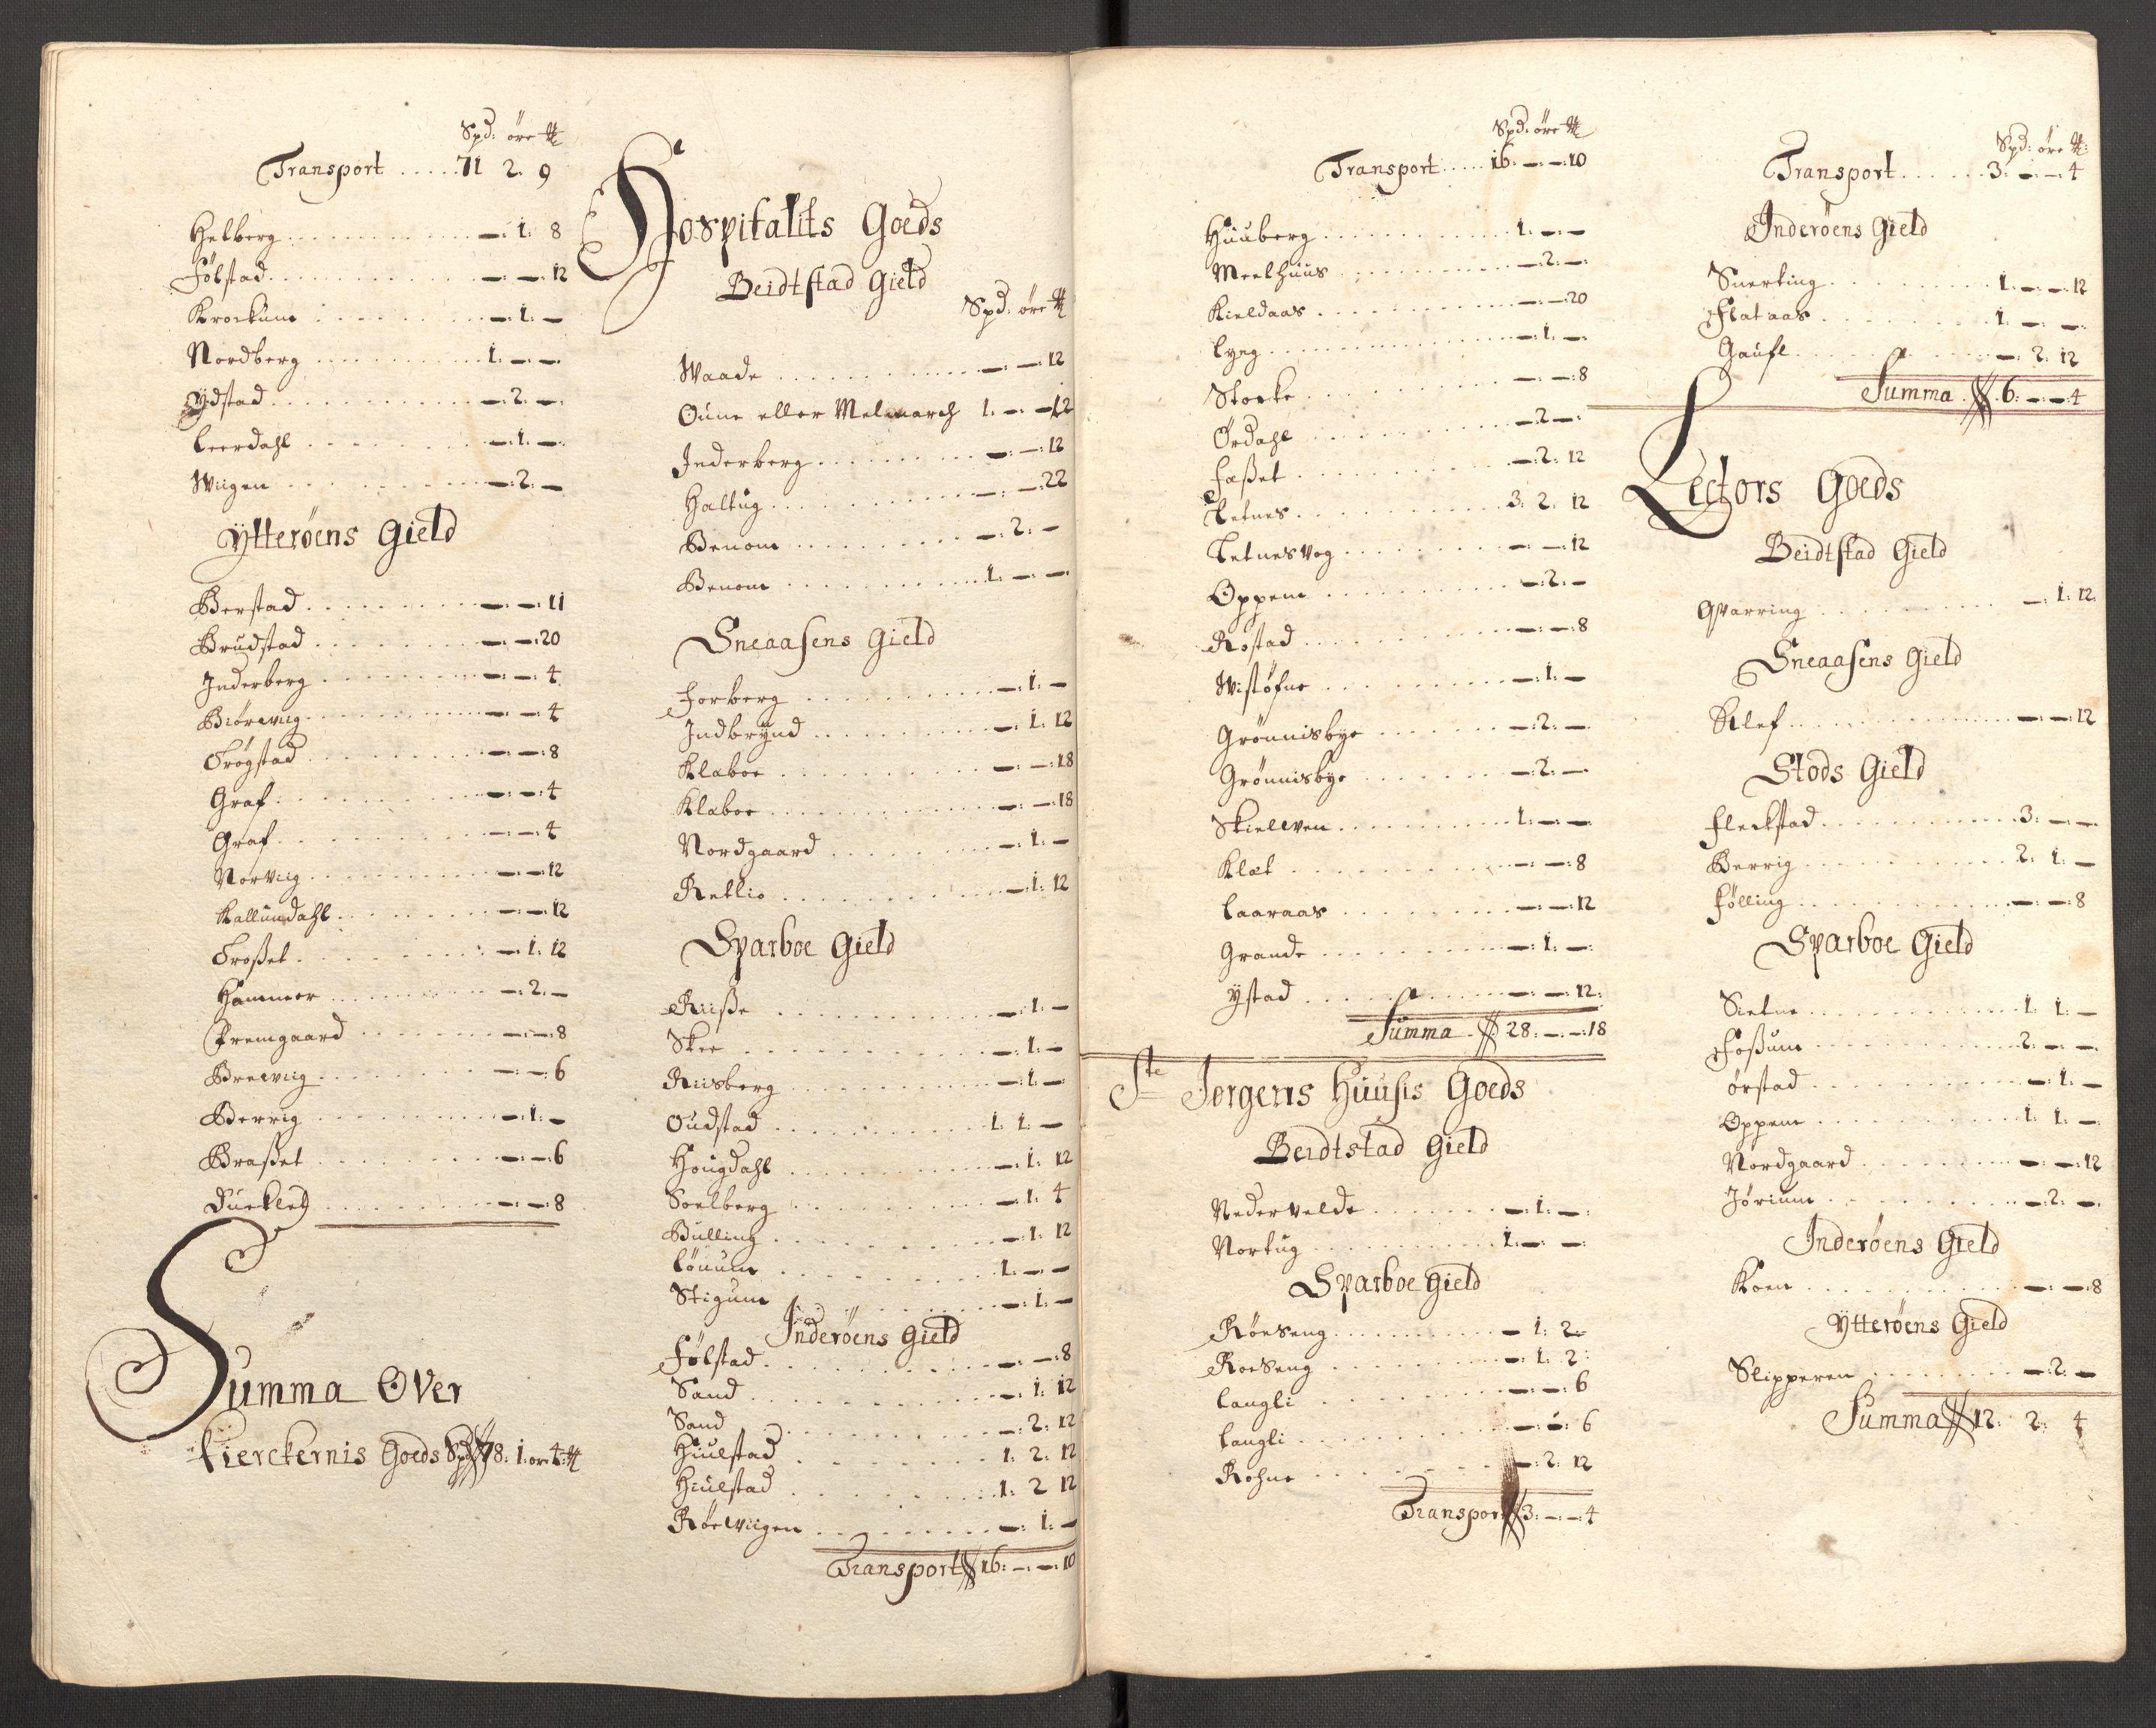 Spd: öre ℔
Transport ..... 71 2. 9
Helberg ........ —. 1. 8
Følstad ........ —. —. 12
Krockum ........ —. 1. —
Nordberg ........ 1. —. —.
Ydstad ........ —. 2. —.
Leerdahl ........ —. 1. —.
Wiigen ........ —. 2. —
Ytterøens Gield
Berstad ........ —. —: 11
Brudstad ........ —. —: 20
Inderberg ........ —. —. 4
Biörwiig ........ —. —. 4
Frøgstad ........ —. —: 8
Graf ........ —. —: 4
Graf ........ —. —: 4
Norviig ........ —. —: 12
Kallundahl ........ —. —: 12
Froßet ........ —. 1. 12
Hammer ........ —. 2. —
Premgaard ........ —. —: 8
Brewiig ........ —. —: 6
Berrig ........ —. 1. —
Braßet ........ —. —: 6
Duekled ........ —. —: 8
Summa Over
Kierckernis Goeds Spd 78: 1. or: 4: ℔
Hospitalits Goeds
Beidtstad Gield
Spd: öre ℔
Waade ........ —. —: 12
Oune eller Melmarch 1. —. —12
Inderberg ........ —. —: 12
Haltug ........ —. —: 22
Benom ........ —. 2. —
Benom ........ 1. —. —
Sneaasens Gield
Forberg ........ —. 1. —
Indbrÿnd ........ —. 1. 12
Klaboe ........ —. —: 18
Klaboe ........ —. —: 18
Nordgaard ........ —. 1. —
Retlio ........ —. 1: 12
Sparboe Gield
Riiße ........ —. 1. —
Skee ........ —. 1. —
Riisberg ........ —. 1. —
Oudstad ........ 1. 1. —
Hougdahl ........ —. 1. 12
Soelberg ........ —. 1. 4
Bulling ........ —. 1: 12
Lönum ........ 1. —. —
Stigum ........ —. 1. —
Inderöens Gield
Følstad ........ —. —. 8
Sand ........ —. 1. 12
Sand ........ —. 2. 12
Hiulstad ........ 1. 2. 12
Hiulstad ........ 1. 2 12
Röewiigen ........ —. 1. —
Transport 16: —. —. 10
Spd: öre ℔
Transport .... 16. —. —: 10
Huuberg ........ 1. —. —
Meelhuus ........ —. 2. —.
Kieldaas ........ —. —: 20
Lyng ........ —. 1. —.
Storke ........ —. —: 8
Ørdahl ........ —. 2. —.
Faßet ........ —. 2. 12
Letnes ........ 3. 2. 12
Letnesvog ........ —. —: 12
Oppem ........ —. 2. —
Røstad ........ —. —: 8
Wistøfne ........ —. 1. —
Grönnisbye ........ —. 2. —.
Grönnisbye ........ —. 2. —
Skielwen ........ 1. —. —
Klæt ........ —. —: 8
Laaraas ........ —. —: 12
Grande ........ —. 1. —.
ÿstad ........ —. —: 12:
Summa 28. —. —: 18
Ste Jorgens Huusis Goeds
Beidtstad Gield
Nedervelde ........ —. 1. —:
Nortug ........ 1. —. —:
Sparboe Gield
Röeseng ........ — 1: 2:
Roeseng ........ —. 1. 2:
Langli ........ —. —: 6
Langli ........ —. —: 6
Rohne ........ —. 2: 12
Transport 3: —. —: 4
Spd: öre ℔:
Transport ...... 3. —. —. 4
Inderöens Gield
Snerting ........ 1. —. —. 12
Flataas ........ 1. —. —.
Gaufl ........ —. 2. 12
Summa 6: —. —: 4
Lectors Goeds
Beidtstad Gield
Qvarring ........ —. 1. 12.
Sneaasens Gield
Klef ........ —. —: 12
Stods Gield
Fleckstad ........ 3. —. —
Berrig ........ 2. 1. —
Følling ........ —. —: 8
Sparboe Gield
Sietne ........ 1. 1. —
Foßum ........ 2. —. —
ørstad ........ —. 1. —
Oppem ........ 1. 1. —.
Nordgaard ........ —. —: 12
Jørium ........ —. 2. —.
Inderöens Gield
Koen ........ —. —: 8
Ytteröens Gield
Slipperen ........ —. 2. —
Summa 12. 2: 4